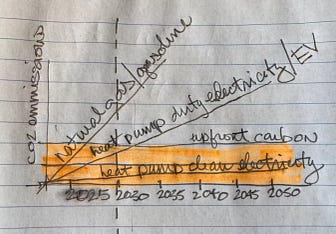 CO2 emmissions
natural gas/gasoline
heat pump duty electricity/EV
upfront carbon
heat pump clean electricity
2025 2030 2035 2040 2045 2050